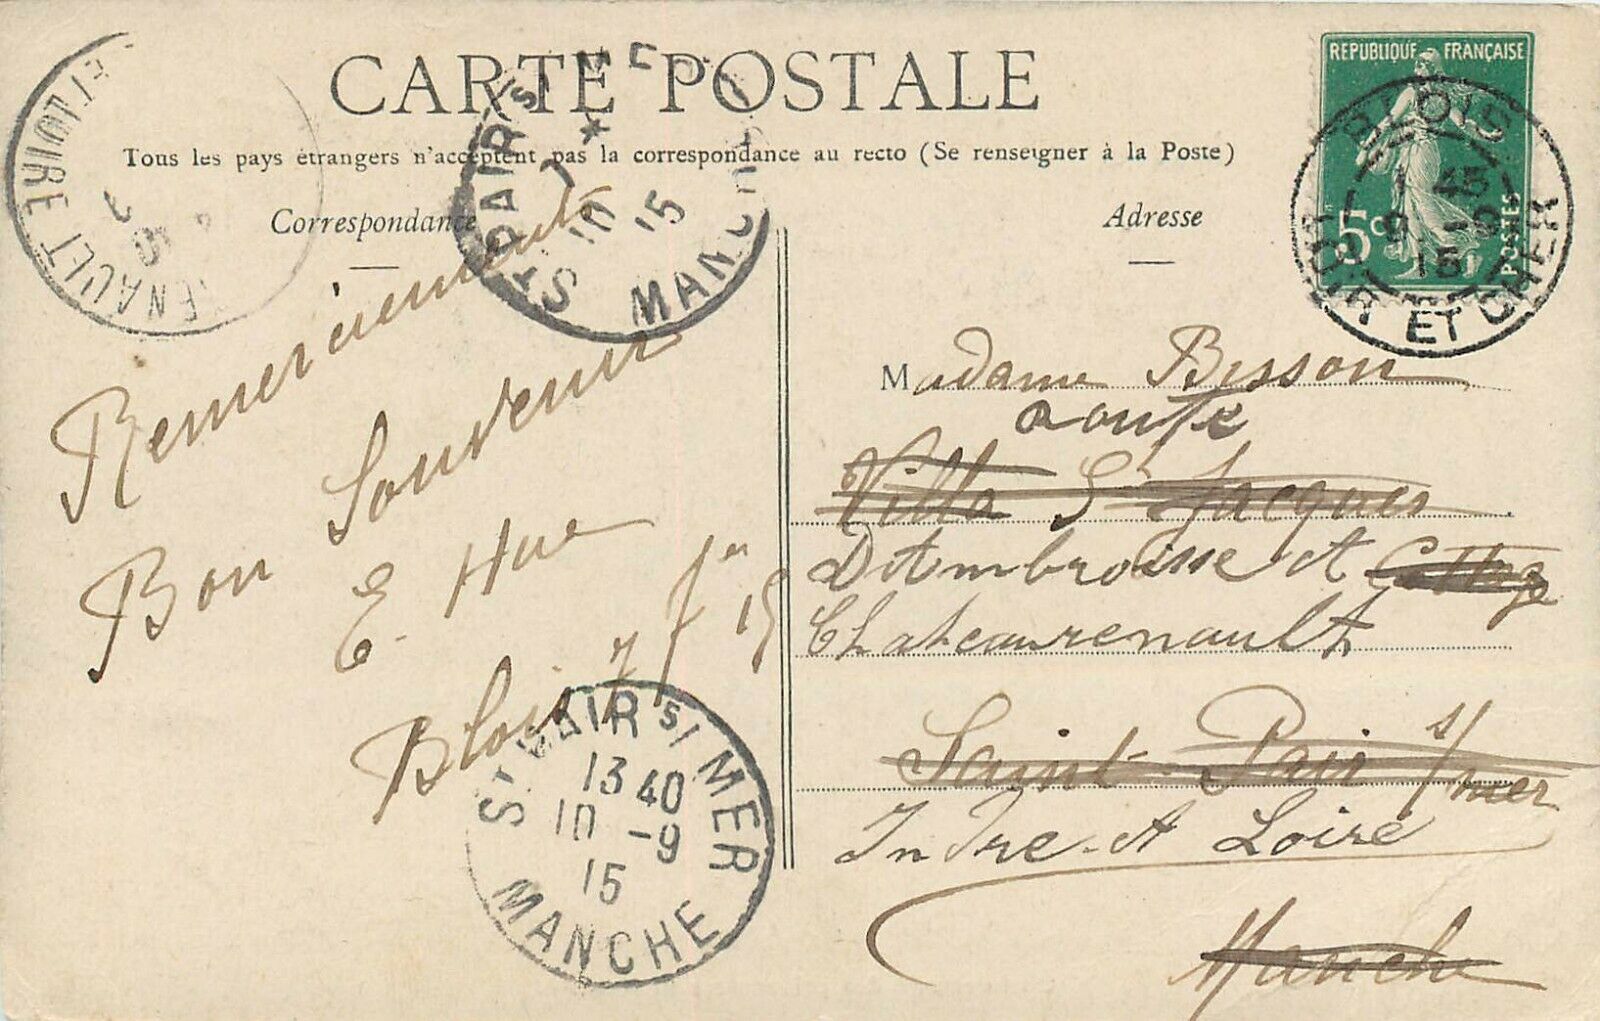 CARTE POSTALE
Tous les pays étrangers n'acceptent pas la correspondance au recto (Se renseigner à la Poste)
Correspondance
Adresse
REPUBLIQUE FRANÇAISE
5c
POSTES
BLOIS
1 45
9 -9
15
LOIR ET CHER
ET LOIRE
ST PAIR S/ MER
10
15
MANCHE
Remerciements
Bon Souvenir
E. Hue
Blois 7 7re 15
ST PAIR S/ MER
13 40
10 -9
15
MANCHE
Madame Bisson
Villa St Jacques
D'Ambroise et
Chateaurenault
Saint-Pair s/mer
Indre et Loire
Manche